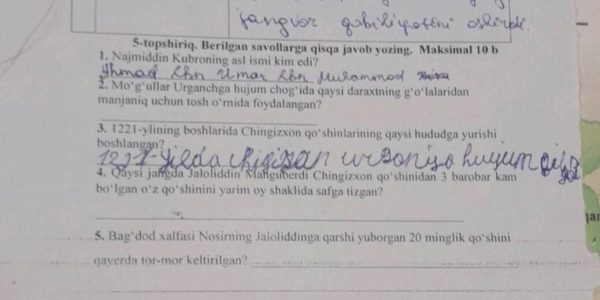 jangvor qobiliyatini oshirdi.
5-topshiriq. Berilgan savollarga qisqa javob yozing. Maksimal 10 b
1. Najmiddin Kubroning asl ismi kim edi?
Ahmad ibn Umar ibn Muhammad
2. Mo‘g‘ullar Urganchga hujum chog‘ida qaysi daraxtning g‘o‘lalaridan
manjaniq uchun tosh o‘rnida foydalangan?
3. 1221-ylining boshlarida Chingizxon qo‘shinlarining qaysi hududga yurishi
boshlangan?
1221-yilda chigizxan hujum
4. Qaysi jangda Jaloliddin Manguberdi Chingizxon qo‘shinidan 3 barobar kam
bo‘lgan o‘z qo‘shinini yarim oy shaklida safga tizgan?
5. Bag‘dod xalfasi Nosirning Jaloliddinga qarshi yuborgan 20 minglik qo‘shini
qayerda tor-mor keltirilgan?